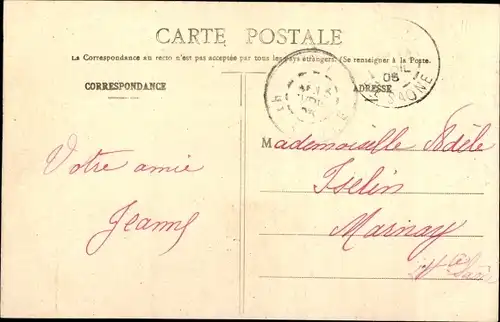 CARTE POSTALE
La Correspondance au recto n'est pas acceptée par tous les pays étrangers. (Se renseigner à la Poste.
CORRESPONDANCE
ADRESSE
06
SAONE
Votre amie
Jeanne
Mademoiselle Adèle
Iselin
Marnay
Hte Saône